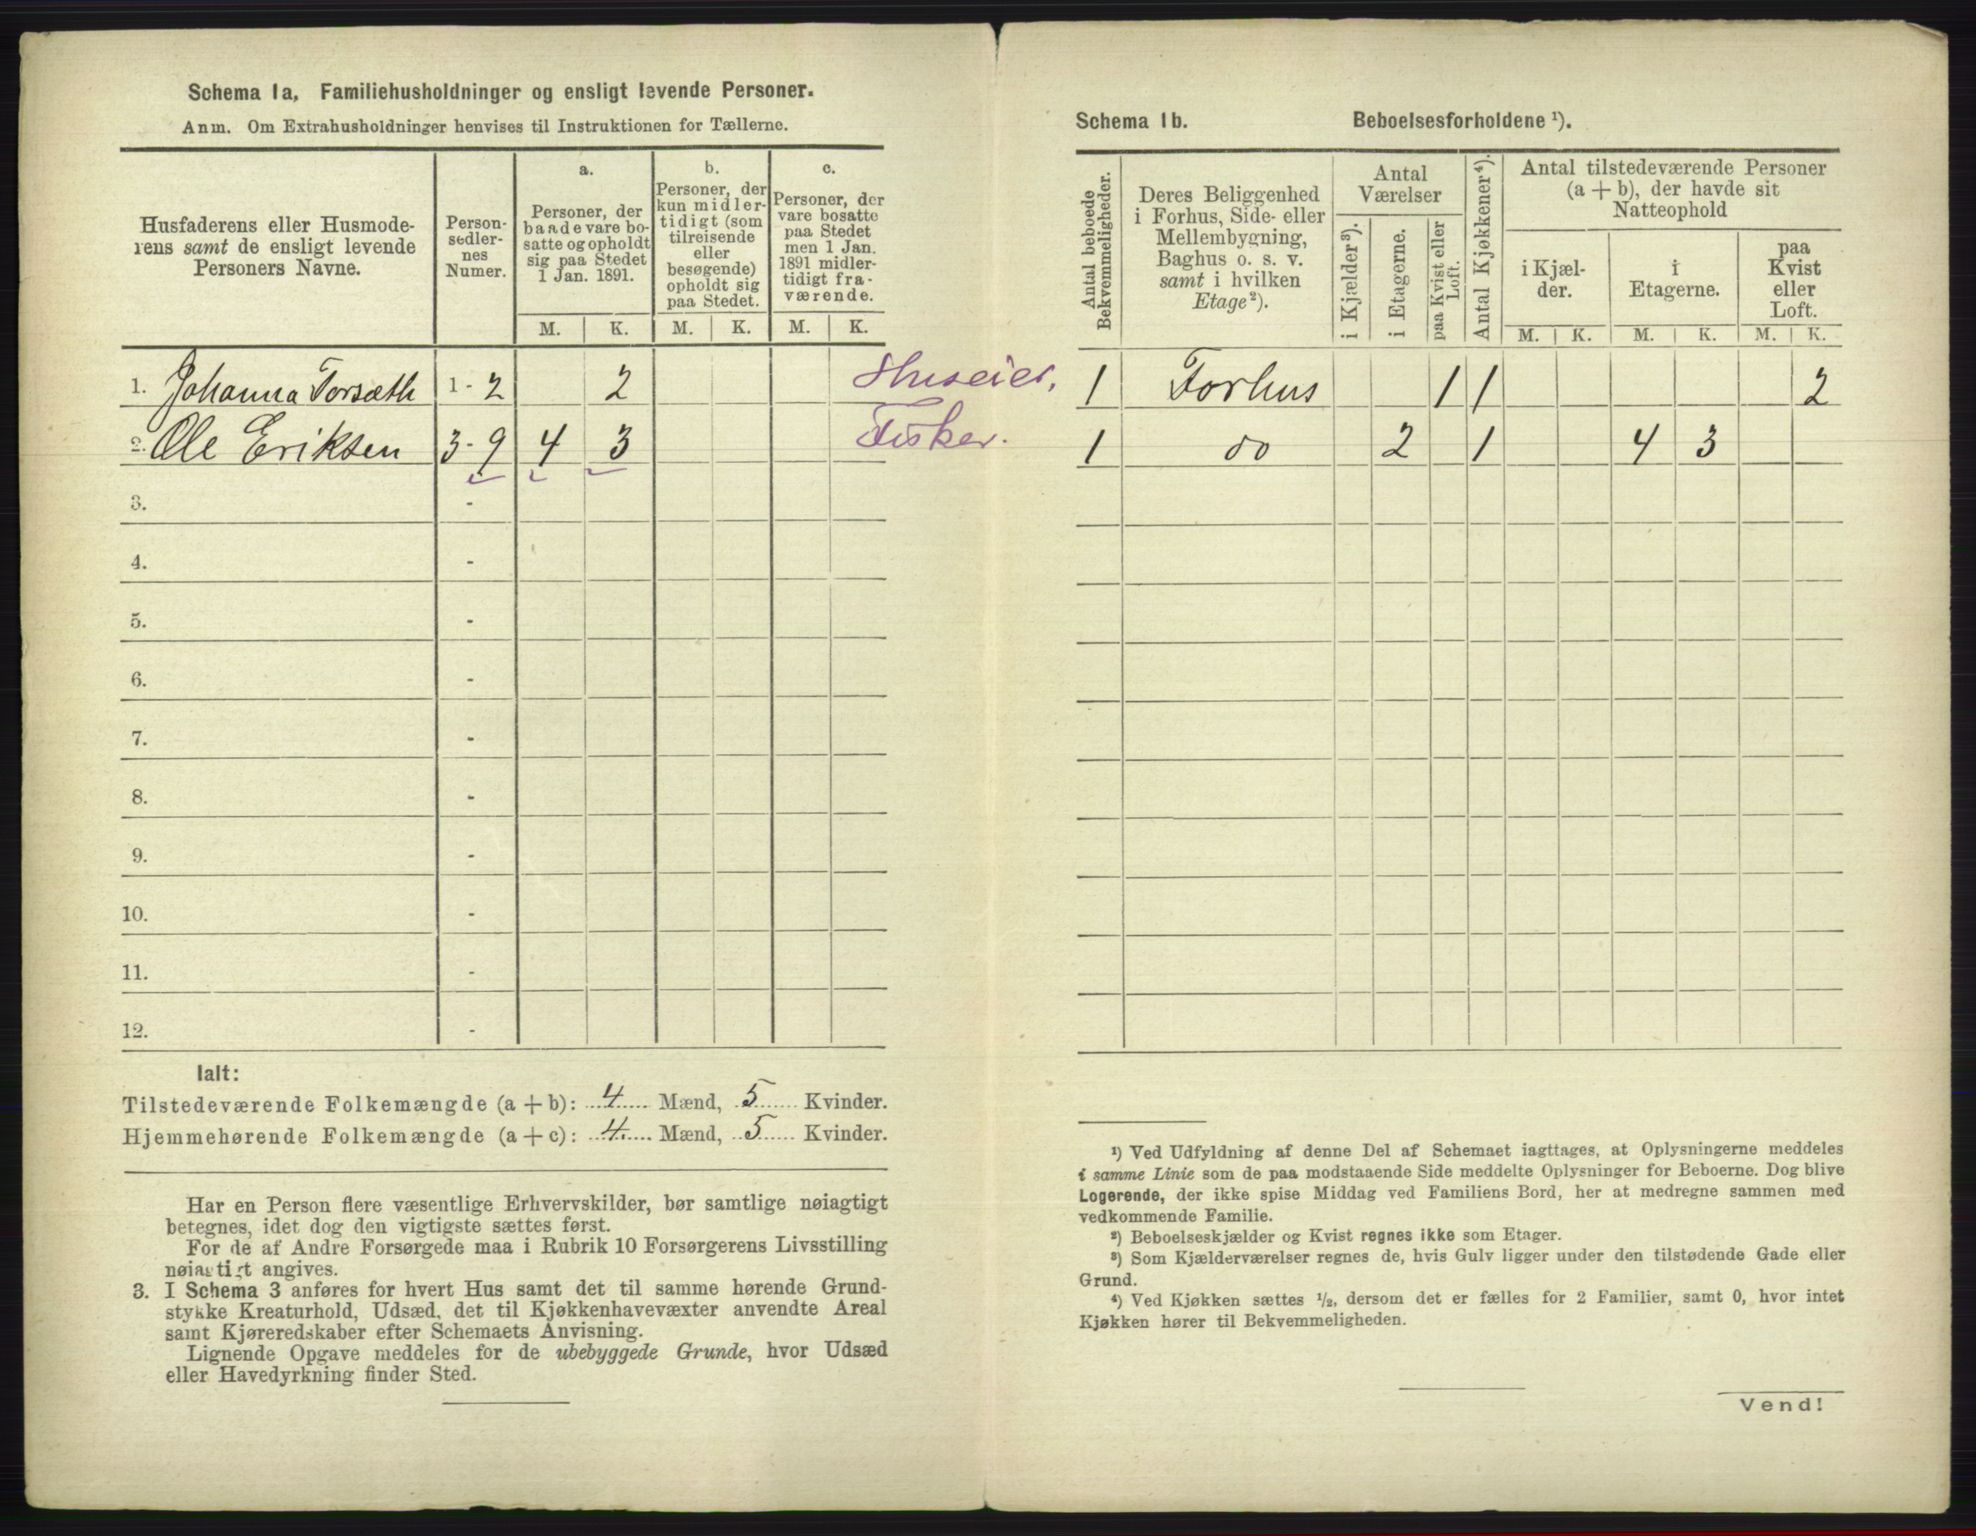 Schema 1a, Familiehusholdninger og ensligt levende Personer.
Anm. Om Extrahusholdninger henvises til Instruktionen for Tællerne.
Husfaderens eller Husmode-
rens samt de ensligt levende
Personers Navne.
Person-
sedler-
nes
Numer.
a.
Personer, der
baade vare bo-
satte og opholdt
sig paa Stedet
1 Jan. 1891.
b.
Personer, der
kun midler-
tidigt (som
tilreisende
eller
besøgende)
opholdt sig
paa Stedet.
c.
Personer, der
vare bosatte
paa Stedet
men 1 Jan.
1891 midler-
tidigt fra-
værende.
M. K. M. K. M. K.
1. Johanna Torsæth 1-2 2 Huseier.
2. Ole Eriksen 3-9 4 3 Fisker.
3. -
4. -
5. -
6. -
7. -
8. -
9. -
10. -
11. -
12. -
Ialt:
Tilstedeværende Folkemængde (a + b): 4 Mænd, 5 Kvinder.
Hjemmehørende Folkemængde (a + c): 4 Mænd, 5 Kvinder.
Har en Person flere væsentlige Erhvervskilder, bør samtlige nøiagtigt
betegnes, idet dog den vigtigste sættes først.
For de af Andre Forsørgede maa i Rubrik 10 Forsørgerens Livsstilling
nøiagtigt angives.
3. I Schema 3 anføres for hvert Hus samt det til samme hørende Grund-
stykke Kreaturhold, Udsæd, det til Kjøkkenhavevæxter anvendte Areal
samt Kjøreredskaber efter Schemaets Anvisning.
Lignende Opgave meddeles for de ubebyggede Grunde, hvor Udsæd
eller Havedyrkning finder Sted.
Schema 1b. Beboelsesforholdene ¹).
Antal beboede
Bekvemmeligheder.
Deres Beliggenhed
i Forhus, Side- eller
Mellembygning,
Baghus o. s. v.
samt i hvilken
Etage ²).
Antal
Værelser
i Kjælder ³).
i Etagerne.
paa Kvist eller
Loft.
Antal Kjøkkener ⁴).
Antal tilstedeværende Personer
(a + b), der havde sit
Natteophold
i Kjæl-
der.
i
Etagerne.
paa
Kvist
eller
Loft.
M. K. M. K. M. K.
1 Forhus 1 1 2
1 do 2 1 4 3
¹) Ved Udfyldning af denne Del af Schemaet iagttages, at Oplysningerne meddeles
i samme Linie som de paa modstaaende Side meddelte Oplysninger for Beboerne. Dog blive
Logerende, der ikke spise Middag ved Familiens Bord, her at medregne sammen med
vedkommende Familie.
²) Beboelseskjælder og Kvist regnes ikke som Etager.
³) Som Kjælderværelser regnes de, hvis Gulv ligger under den tilstødende Gade eller
Grund.
⁴) Ved Kjøkken sættes ½, dersom det er fælles for 2 Familier, samt 0, hvor intet
Kjøkken hører til Bekvemmeligheden.
Vend!